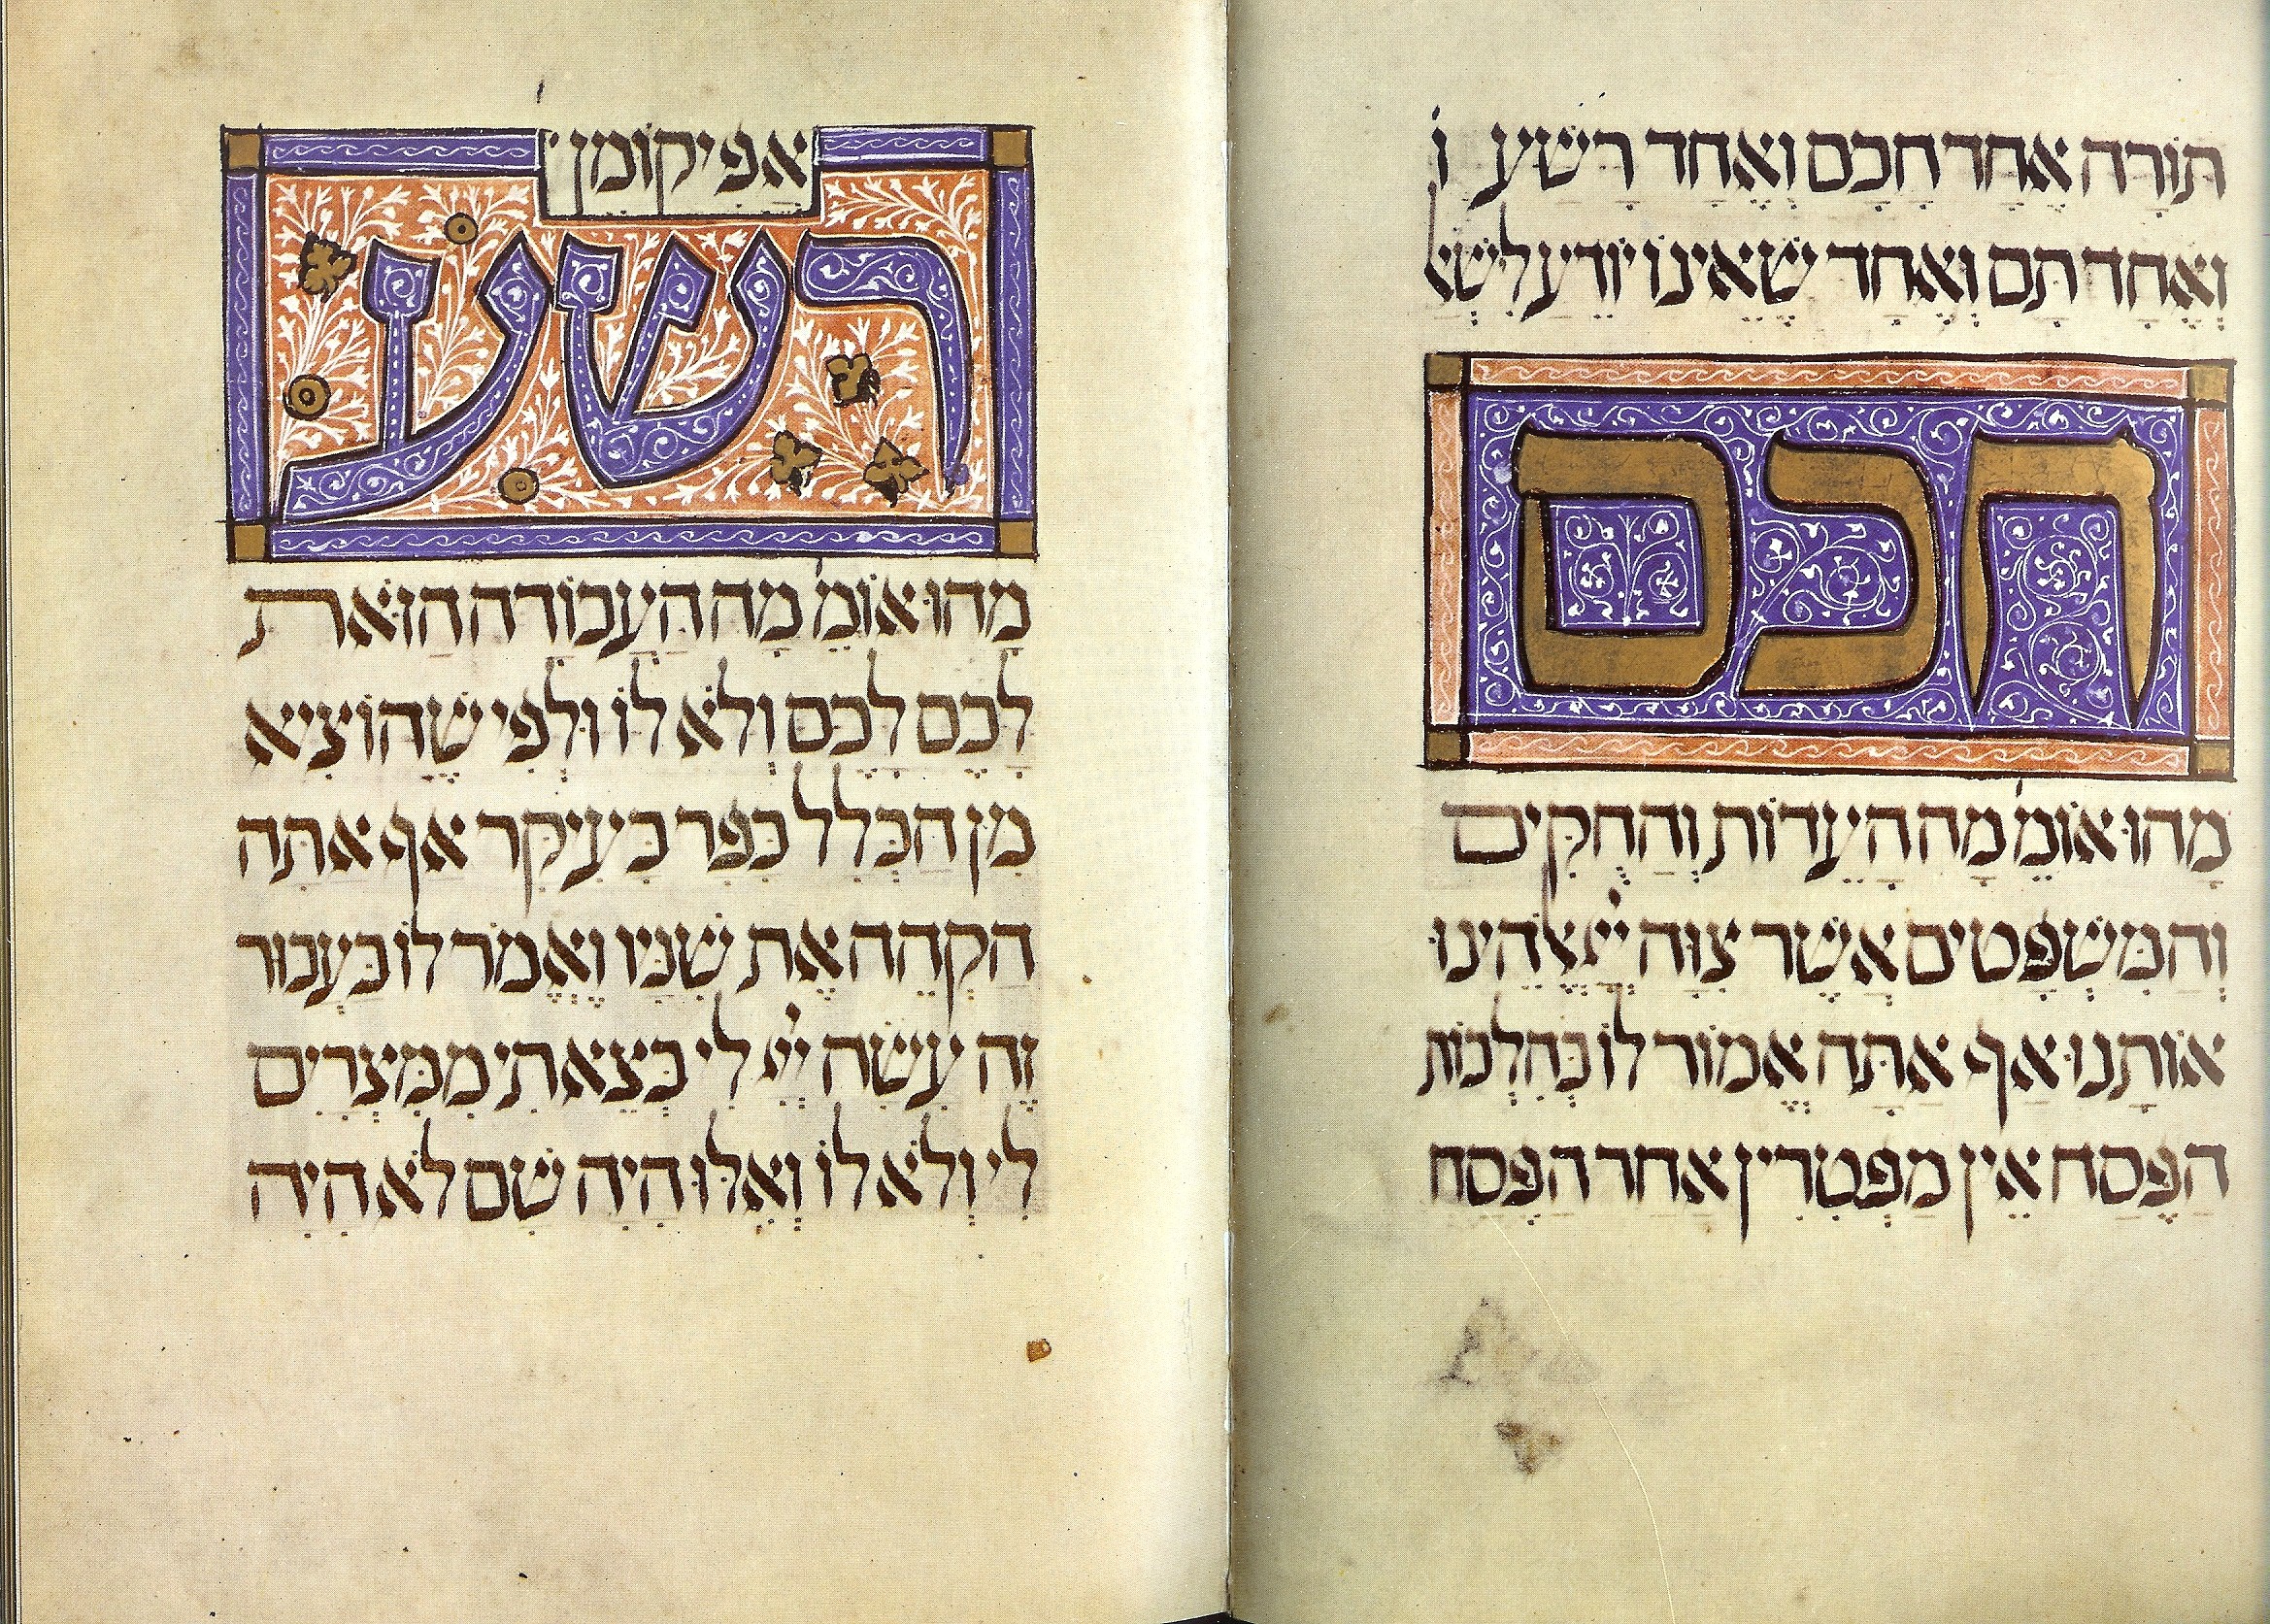 תּוֹרָה אֶחָד חָכָם וְאֶחָד רָשָׁע ו
וְאֶחָד תָּם וְאֶחָד שֶׁאֵינוֹ יוֹדֵעַ לִשְׁא
חכם
מַהוּ אוֹמֵ׳ מָה הָעֵדוֹת וְהַחֻקִּים
וְהַמִּשְׁפָּטִים אֲשֶׁר צִוָּה יְיָ׳ אֱלֹהֵינוּ
אוֹתָנוּ אַף אַתָּה אֱמוֹר לוֹ כְּהִלְכוֹת
הַפֶּסַח אֵין מַפְטִירִין אַחַר הַפֶּסַח
אֲפִיקוֹמֶן
רשע
מָהוּ אוֹמֵ׳ מָה הָעֲבוֹדָה הַזֹּאת
לָכֶם לָכֶם וְלֹא לוֹ וּלְפִי שֶׁהוֹצִיא
מִן הַכְּלָל כָּפַר בָּעִיקָּר אַף אַתָּה
הַקְהֵה אֶת שִׁנָּיו וֶאֱמֹר לוֹ בַּעֲבוּר
זֶה עָשָׂה יְיָ׳ לִי בְּצֵאתִי מִמִּצְרַיִם
לִי וְלֹא לוֹ וְאִלּוּ הָיָה שָׁם לֹא הָיָה